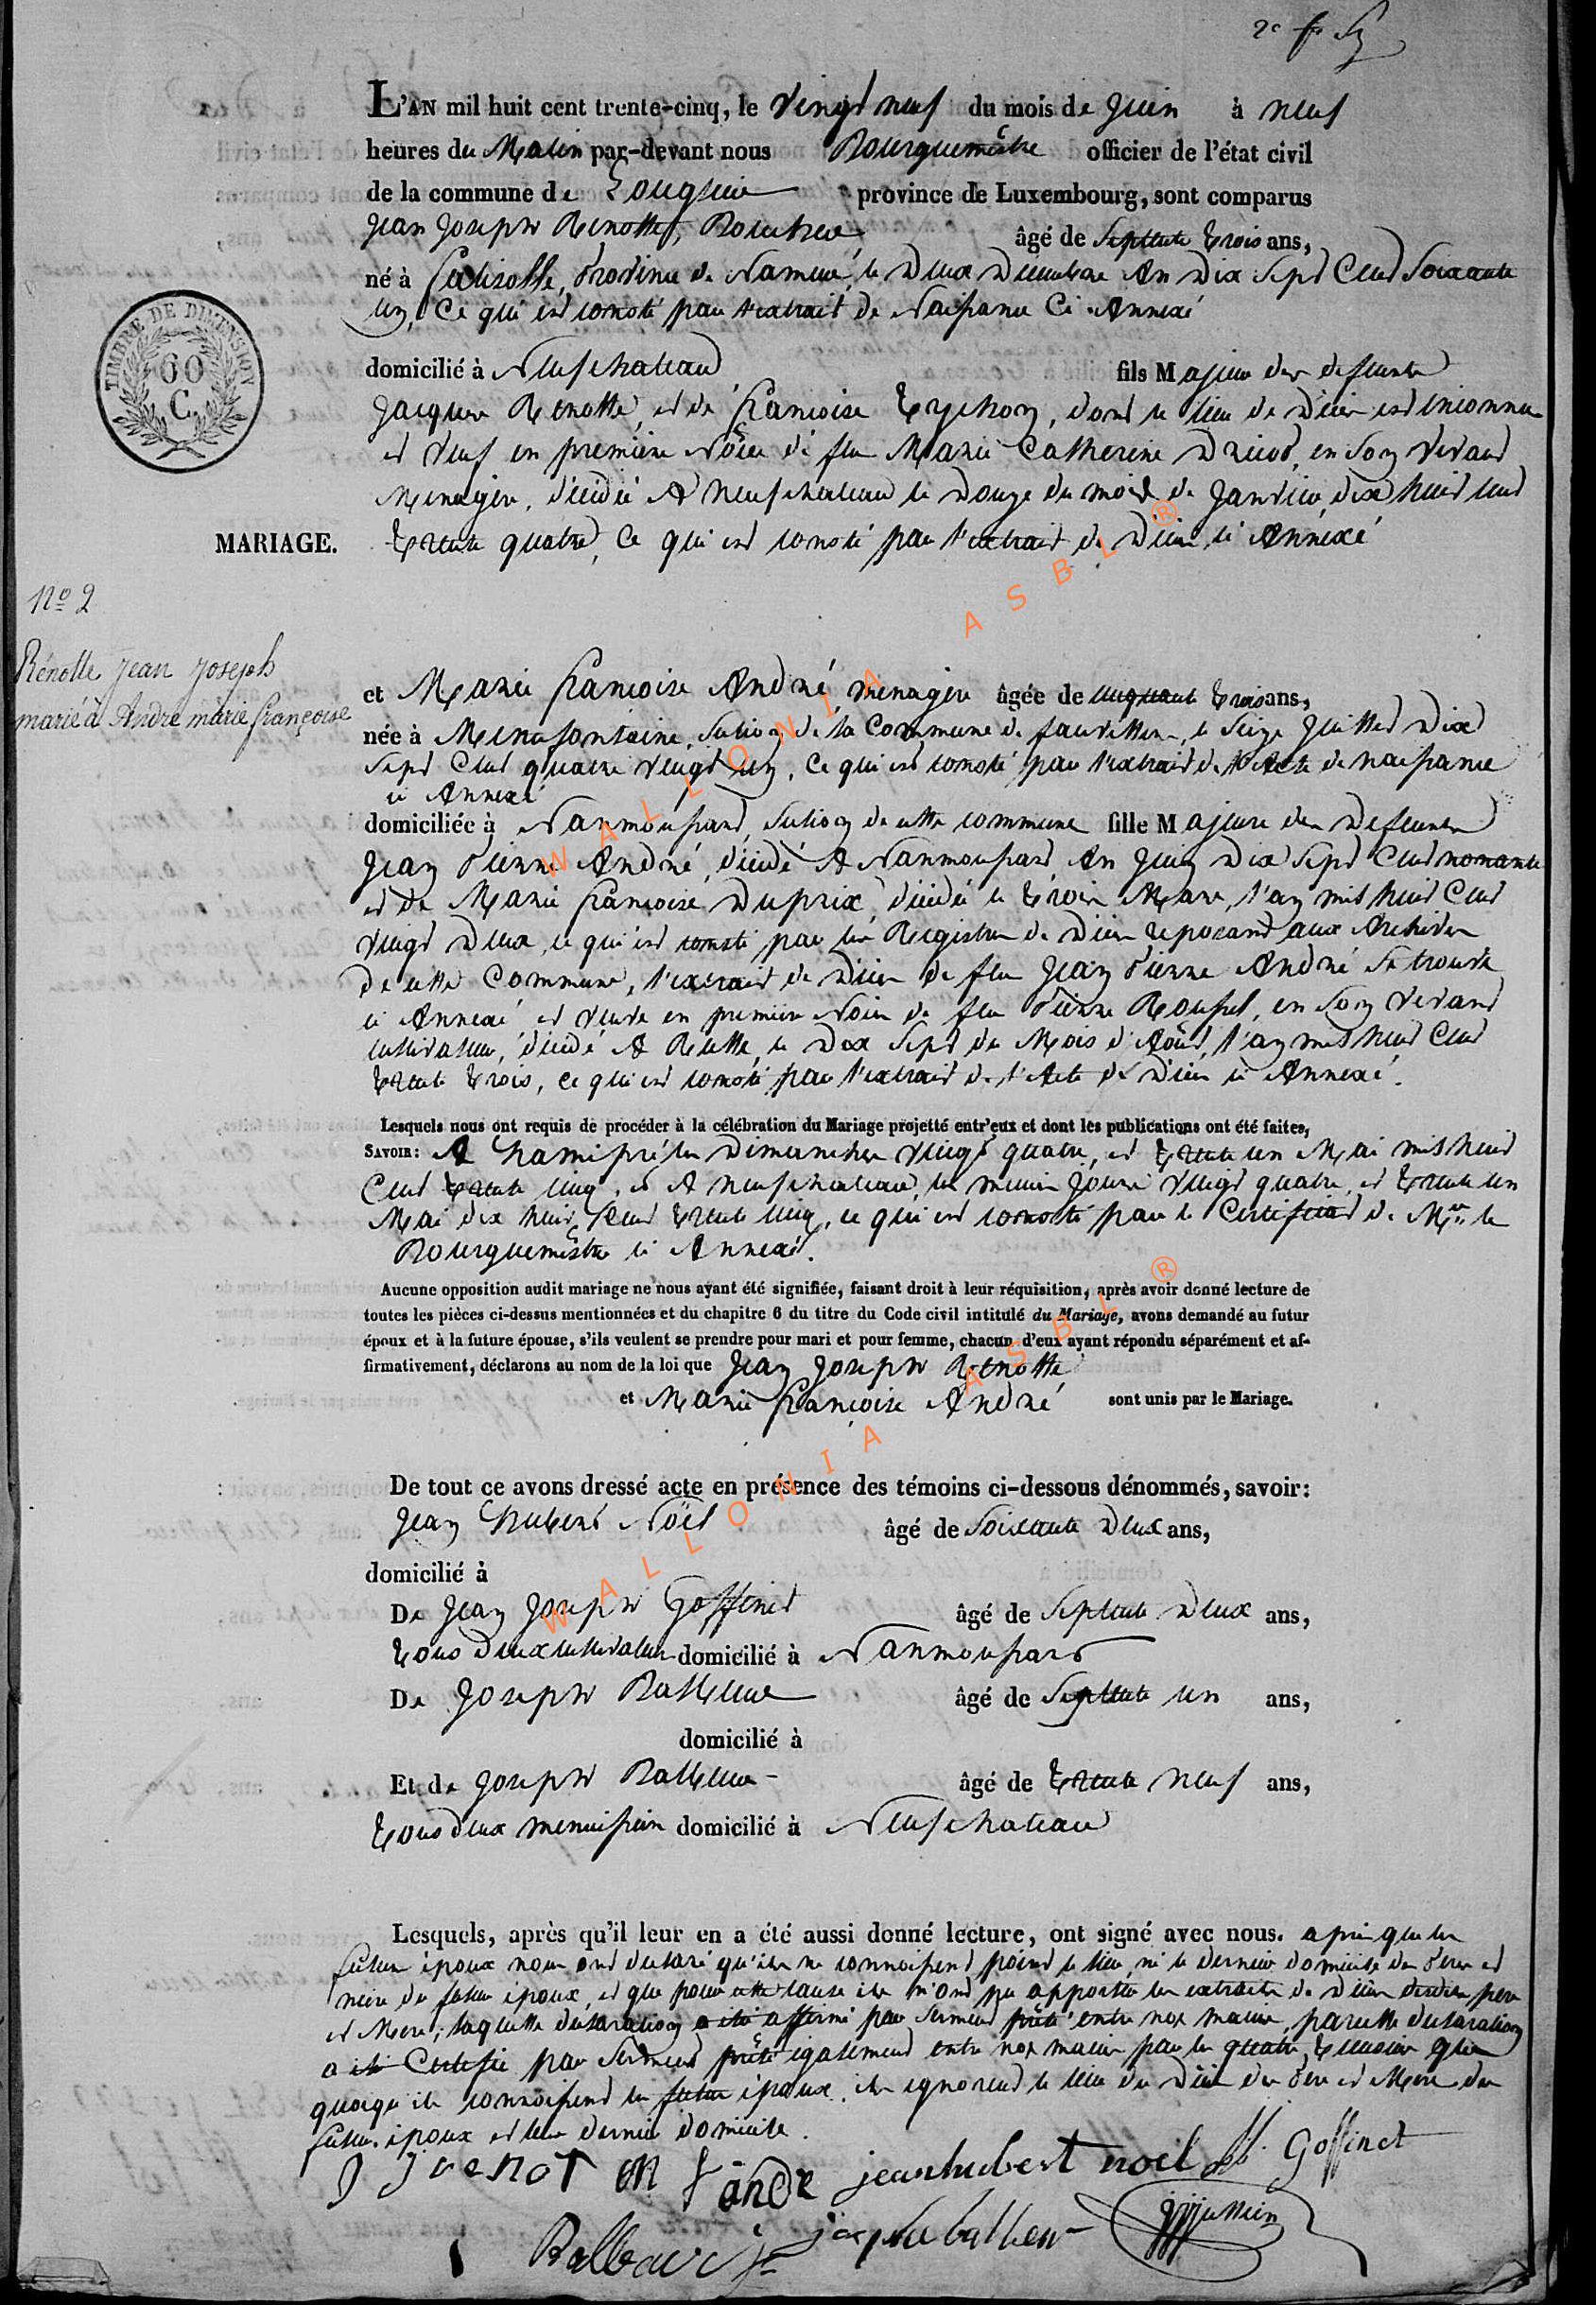 2e f
L'AN mil huit cent trente-cinq, le vingt neuf du mois de Juin à neuf
heures du Matin par-devant nous Bourguemêstre officier de l'état civil
de la commune de Longlier province de Luxembourg, sont comparus
Jean Joseph Renotte, Boucher âgé de Septente trois ans,
né à Falisolle, Province de Namur, le deux Décembre An Dix Sept Cent Soixante
un, Ce qui est consté par l'extrait de Naissance Ci Annexé
TIMBRE DE DIMENSION
60
C.
domicilié à Neufchateau fils Majeur des defunts
Jacques Renotte, et de francoise, dont le lieu de Décès est inconnu
et veuf en première Nôces de feu Marie Catherine, en son vivant
Menagère, décédée A neufchateau le Douze du mois de Janvier, dix huit cent
MARIAGE.
trente quatre, Ce qui est consté par l'extrait de Décès ci Annexé
No 2
Rénotte Jean Joseph
marié à André marie françoise
et Marie francoise André, menagère âgée de cinquante trois ans,
née à Menufontaine, Section de la Commune de fauvillers, le Seize Juillet Dix
Sept Cent quatre vingt un, Ce qui est consté par l'extrait de l'Acte de naissance
ci Annexé
domiciliée à Nanmoussard, Section de cette commune fille Majeure des Defunts
Jean Pierre André, décédé A Nanmoussard An Juin Dix Sept Cent nonante
et de Marie francoise Duprix, décédée le trois Mars, l'an mil huit Cent
vingt Deux, ce qui est consté par les Registres de Décès reposant aux Archives
de cette Commune, l'extrait de Décès de feu Jean Pierre André se trouve
ci Annexé, et veuve en première Noces de feu Pierre Roussel, en son vivant
cultivateur, décédé A Rulle, le Dix Sept du Mois d'Août, l'an mil huit Cent
trente trois, Ce qui est consté par l'extrait de l'Acte de Décès ci Annexé.
Lesquels nous ont requis de procéder à la célébration du Mariage projetté entr'eux et dont les publications ont été faites,
SAVOIR: A hamipré les Dimanches vingt quatre, et trente un Mai mil huit
Cent trente cinq, et A neufchateau, les mêmes jours vingt quatre, et trente un
Mai dix huit Cent trente cinq, ce qui est consté par le Certificat de Mr. le
Bourguemêstre ci Annexé.
Aucune opposition audit mariage ne nous ayant été signifiée, faisant droit à leur réquisition, après avoir donné lecture de
toutes les pièces ci-dessus mentionnées et du chapitre 6 du titre du Code civil intitulé du Mariage, avons demandé au futur
époux et à la future épouse, s'ils veulent se prendre pour mari et pour femme, chacun d'eux ayant répondu séparément et af-
firmativement, déclarons au nom de la loi que Jean Joseph Renotte
et Marie francoise André sont unis par le Mariage.
De tout ce avons dressé acte en présence des témoins ci-dessous dénommés, savoir:
Jean Hubert Noël âgé de Soixante Deux ans,
domicilié à
De Jean Joseph Goffinet âgé de Septente Deux ans,
tous Deux cultivateurs domicilié à Nanmoussard
De Joseph Balleux âgé de Septente un ans,
domicilié à
Et de Joseph Balleux âgé de trente neuf ans,
tous deux menuisiers domicilié à Neufchateau
Lesquels, après qu'il leur en a été aussi donné lecture, ont signé avec nous. après que les
futurs époux nous ont déclaré qu'ils ne connoissent point le lieu, ni le dernier domicile des Père et
mère du futur époux, et que pour cette cause ils n'ont pu apporter les extraits de Décès desdits père
et Mère; laquelle déclaration a été affirmé par serment prêté entre nos mains, pareille déclaration
a été Certifié par serment prêté également entre nos mains par les quatre témoins que
quoiqu'ils connoissent les futurs époux, ils ignorent le lieu du Décès des Père et Mère du
futur époux et leur dernier domicile.
J J renot M f andre jean hubert noel JJ. Goffinet
Balleux joseph balleux
WALLONIA ASBL ®
WALLONIA ASBL ®